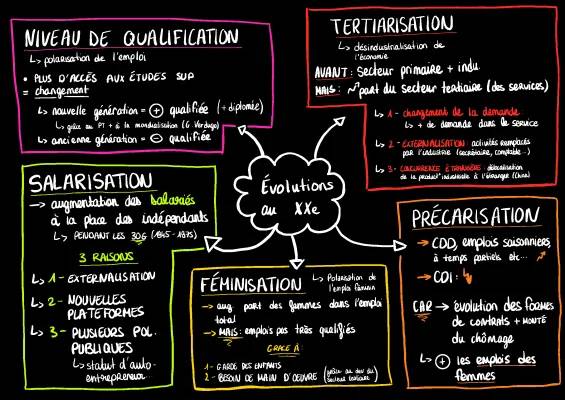 NIVEAU DE QUALIFICATION
↳ polarisation de l'emploi
• PLUS D'ACCÈS AUX ÉTUDES SUP
= changement
↳ nouvelle génération = + qualifiée (+ diplômée)
↳ grâce au PT + à la mondialisation (G. Verdugo)
↳ ancienne génération = - qualifiée
TERTIARISATION
↳ désindustrialisation de
l'économie
AVANT : Secteur primaire + indu.
MAIS : part du secteur tertiaire (des services)
↳ 1 - changement de la demande
↳ + de demande dans le service
↳ 2 - EXTERNALISATION : activités remplacés
par l'industrie (secrétaire, comptable)
↳ 3 - CONCURRENCE ÉTRANGÈRE : délocalisation
de la product° industrielle à l'étranger (Chine)
Évolutions
au XXe
SALARISATION
→ augmentation des salariés
à la place des indépendants
↳ PENDANT LES 30G (1945-1975)
3 RAISONS
↳ 1 - EXTERNALISATION
↳ 2 - NOUVELLES
PLATEFORMES
↳ 3 - PLUSIEURS POL.
PUBLIQUES
↳ statut d'auto-
entrepreneur
FÉMINISATION
↳ Polarisation de
l'emploi féminin
→ aug. part des femmes dans l'emploi
total
→ MAIS : emplois pas très qualifiés
GRÂCE À :
1 - GARDE DES ENFANTS
2 - BESOIN DE MAIN D'OEUVRE (grâce au dev du
secteur tertiaire)
PRÉCARISATION
→ CDD, emplois saisonniers,
à temps partiels etc...
→ CDI :
CAR → évolution des formes
de contrats + monté
du chômage
↳ + les emplois des
femmes